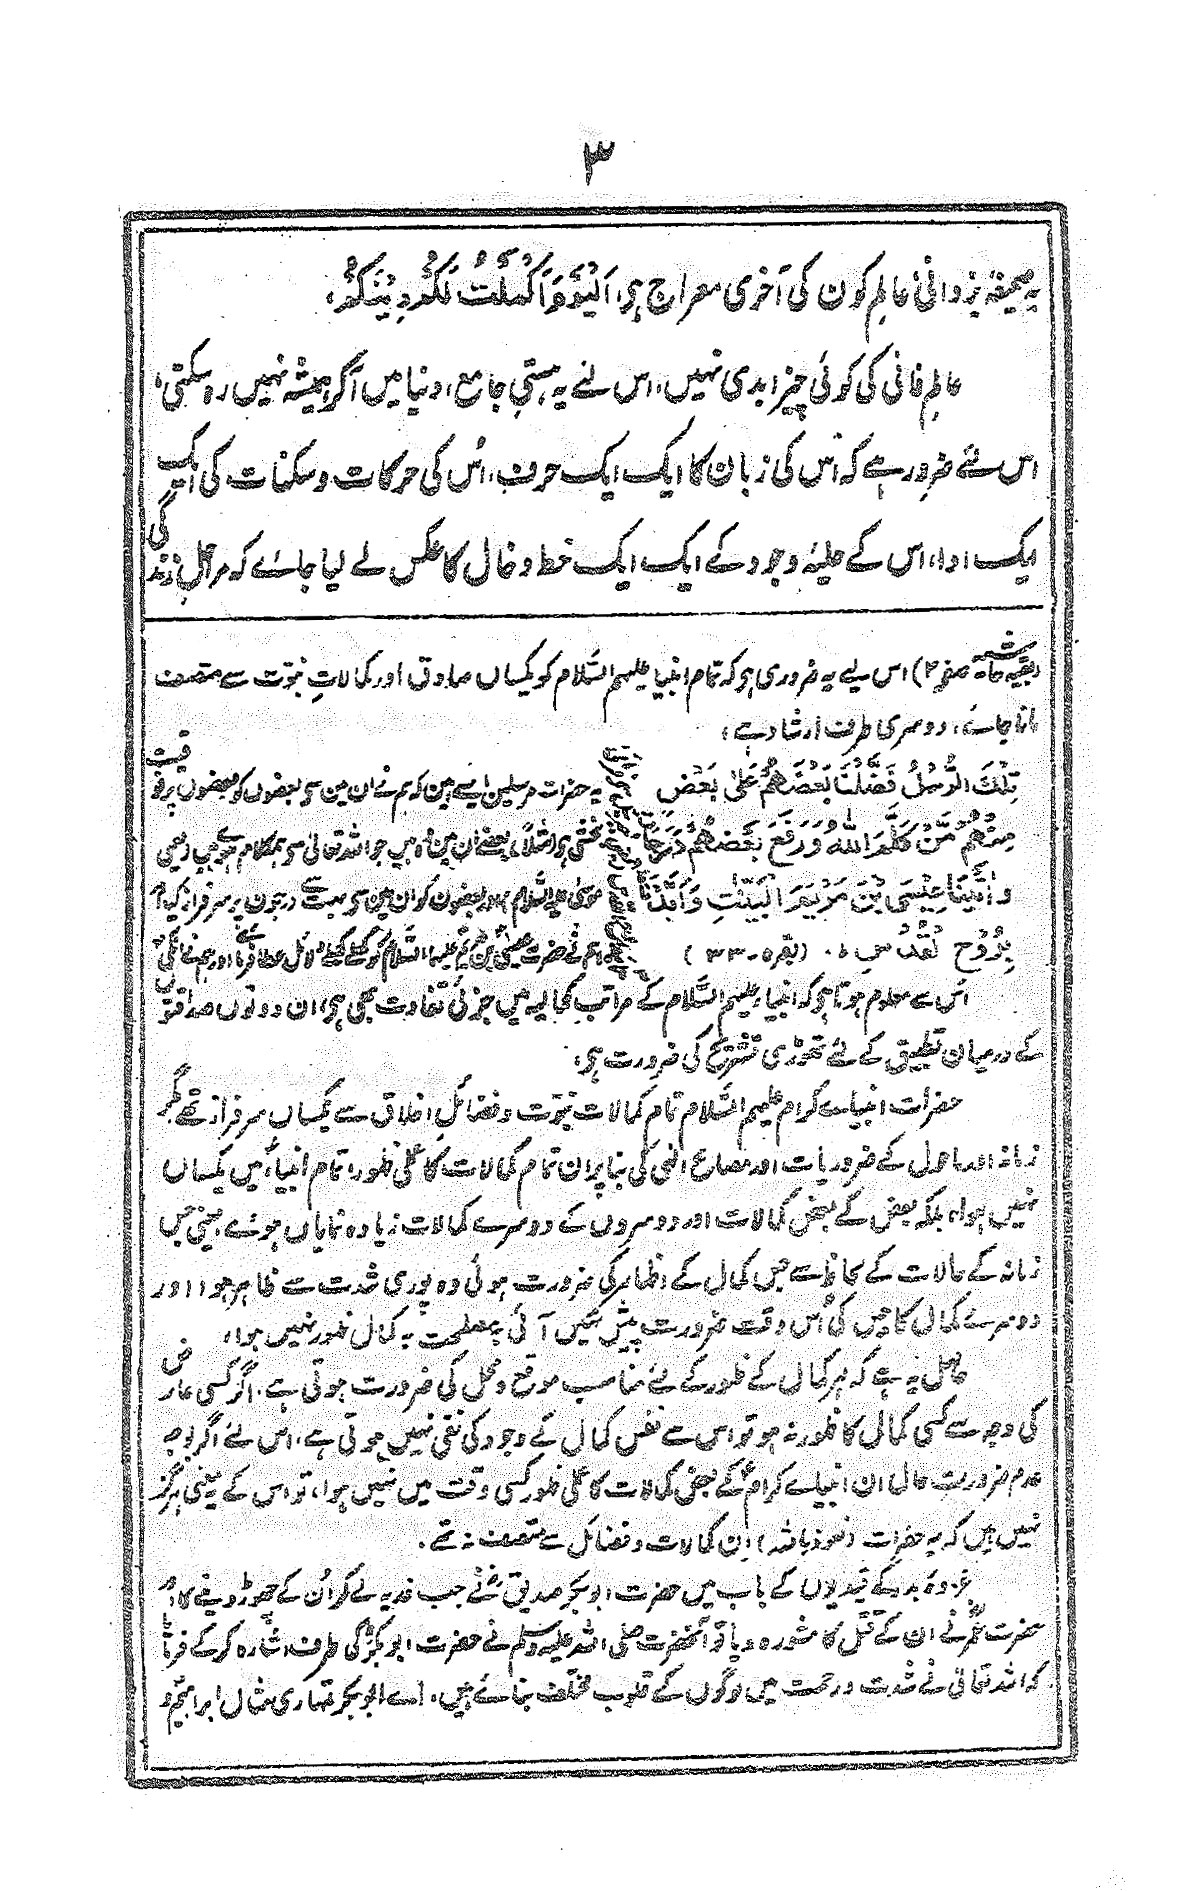 ۳
یہ صحیفۂ یزدانی عالمِ کون کی آخری معراج ہی، اَلْیَوْمَ اَکْمَلْتُ لَکُمْ دِیْنَکُمْ،
عالمِ فانی کی کوئی چیز ابدی نہیں، اس لئے یہ ہستیِ جامع، دنیا میں اگر ہمیشہ نہیں رہ سکتی،
اس لئے ضرور ہے کہ اُس کی زبان کا ایک ایک حرف، اُس کی حرکات و سکنات کی ایک
ایک ادا، اس کے حلیۂ وجود کے ایک ایک خط و خال کا عکس لے لیا جائے کہ مراحلِ زندگی
(بقیہ حاشیہ صفحہ ۲) اس لیے یہ ضروری ہی کہ تمام انبیا علیہم السّلام کو یکساں صادق اور کمالاتِ نبوّت سے متصف
مانا جائے، دوسری طرف ارشاد ہے،
تِلْکَ الرُّسُلُ فَضَّلْنَا بَعْضَهُمْ عَلٰی بَعْضٍ یہ حضرات مرسلین ایسے ہین کہ ہم نے ان مین سے بعضوں کو بعضوں پر فوقیت
مِنْهُمْ مَّنْ کَلَّمَ اللّٰهُ وَرَفَعَ بَعْضَهُمْ دَرَجَاتٍ بخشی ہی مثلاً بعضے ان مین وہ ہیں جو اللہ تعالی سے ہمکلام ہوئے ہیں (یعنی
وَاٰتَیْنَا عِیْسَی بْنَ مَرْیَمَ الْبَیِّنٰتِ وَاَیَّدْنٰهُ موسیٰ علیہ السّلام) اور بعضون کو ان مین سے بہت درجون پر سرفراز کیا،
بِرُوْحِ الْقُدُسِ ۰ (بقرہ - ۳۳) اور ہم نے حضرت عیسیٰ بن مریم علیہما السّلام کو کھلے کھلے دلائل عطا فرمائے اور ہم نے انکی
اس سے معلوم ہوتا ہی کہ انبیاء علیہم السّلام کے مراتبِ کمالیہ میں جزئی تفاوت بھی ہی، ان دونوں صداقتوں
کے درمیان تطبیق کے لئے تھوڑی تشریح کی ضرورت ہی،
حضرات انبیائے کرام علیہم السّلام تمام کمالات نبوّت و فضائلِ اخلاق سے یکساں سرفراز تھے، مگر
زمانہ اور ماحول کے ضروریات اور مصالح الٰہی کی بنا پر ان تمام کمالات کا عملی ظہور تمام انبیاءؑ میں یکساں
نہیں ہوا، بلکہ بعض کے بعض کمالات اور دوسروں کے دوسرے کمالات زیادہ نمایاں ہوئے، یعنی جس
زمانہ کے حالات کے لحاظ سے جس کمال کے اظہار کی ضرورت ہوئی وہ پوری شدت سے ظاہر ہوا، اور
دوسرے کمال کا جس کی اُس وقت ضرورت پیش نہیں آئی بمصلحت یہ کمال ظہور نہیں ہوا،
حاصل یہ ہے کہ ہر کمال کے ظہور کے لئے مناسب موقع و محل کی ضرورت ہوتی ہے، اگر کسی عارض
کی وجہ سے کسی کمال کا ظہور نہ ہو تو اس سے نفس کمال کے وجود کی نفی نہیں ہوتی ہے، اس لئے اگر بوجہ
عدم ضرورتِ حال ان انبیائے کرامؑ کے بعض کمالات کا عملی ظہور کسی وقت میں نہیں ہوا، تو اس کے یہ معنی ہرگز
نہیں ہیں کہ یہ حضرات (نعوذ باللہ) ان کمالات و فضائل سے متصف نہ تھے،
غزوۂ بدر کے قیدیوں کے باب میں حضرت ابوبکر صدیقؓ نے جب فدیہ لے کر اُن کے چھوڑ دینے کا، اور
حضرت عمرؓ نے ان کے قتل کا مشورہ دیا تو آنحضرت صلی اللہ علیہ وسلم نے حضرت ابوبکرؓ کی طرف اشارہ کر کے فرمایا
کہ اللہ تعالیٰ نے شدت و رحمت میں لوگوں کے قلوب مختلف بنائے ہیں، اے ابوبکر تمہاری مثال ابراہیمؑ و